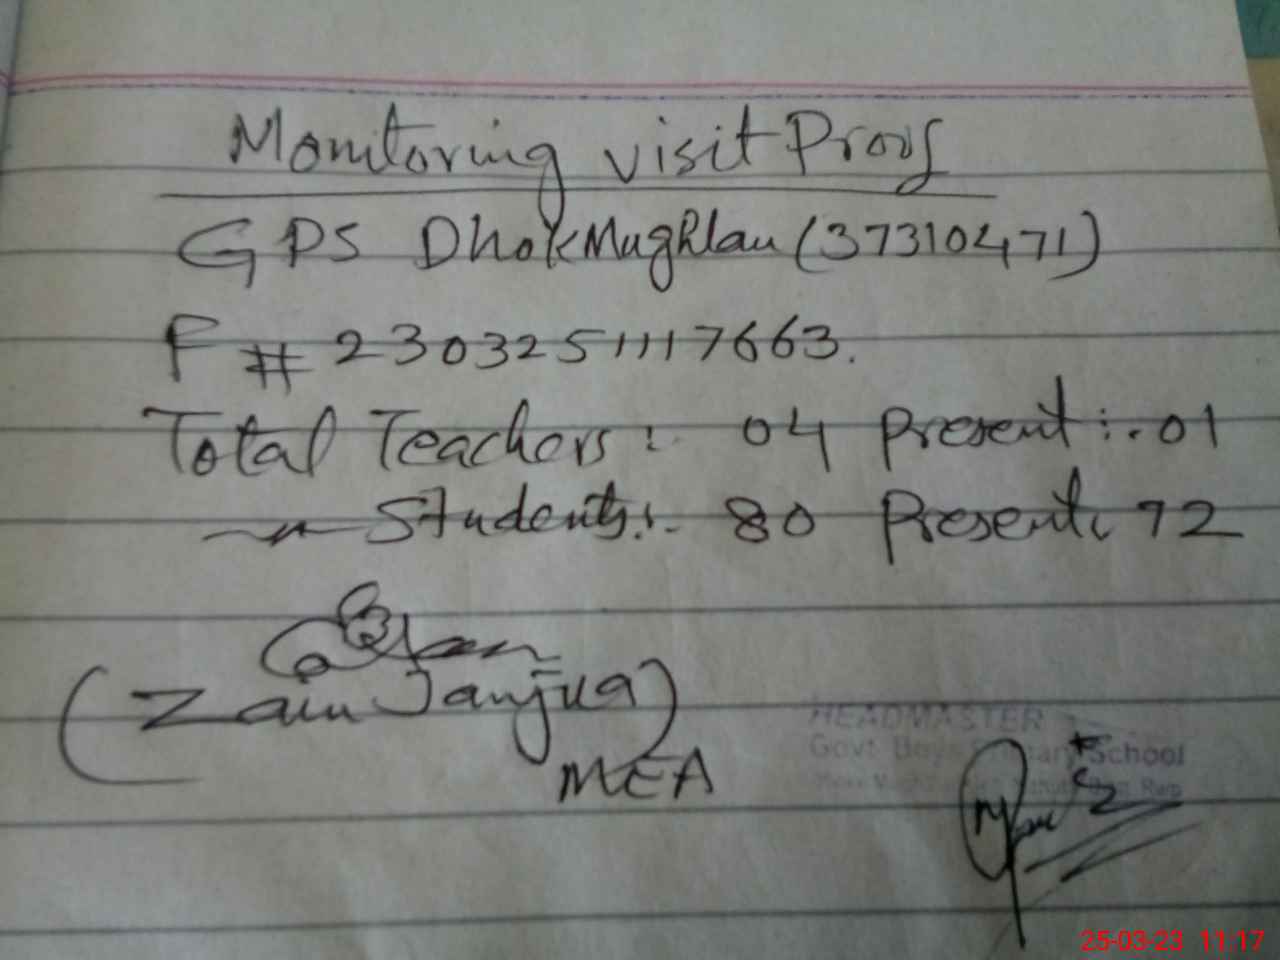 Monitoring visit Proof
GPS DhokMughlan (37310471)
F # 2303251117663.
Total Teachers: 04 Present:-01
Students:- 80 Present: 72
(Zain Janjua)
MEA
HEADMASTER
Govt Boys Primary School
25-03-23 11:17